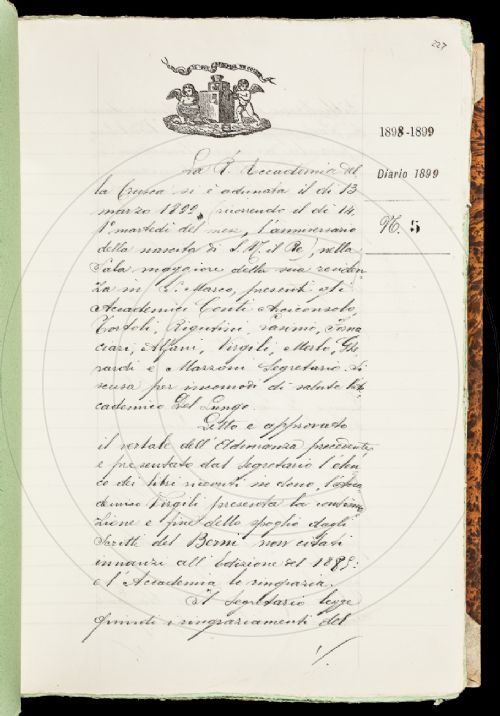 227
1898-1899
Diario 1899
N. 5
La R. Accademia del-
la Crusca si è adunata il dì 13
marzo 1899, (ricorrendo il dì 14,
1º martedì del mese, l'anniversario
della nascita di S. M. il Re), nella
Sala maggiore della sua residen-
za in S. Marco, presenti gli
Accademici Conti Arciconsolo,
Tortoli, Rigutini, Tasino, Forna-
ciari, Alfani, Virgili, Merlo, Ghe-
rardi e Mazzoni Segretario. Si
scusa per incomodi di salute l'Ac-
cademico Del Lungo.
Letto e approvato
il verbale dell'Adunanza precedente,
e presentato dal Segretario l'elen-
co dei libri ricevuti in dono, l'Acca-
demico Virgili presenta la continua-
zione e fine dello spoglio dagli
Scritti del Berni non citati
innanzi all'Edizione del 1885:
e l'Accademia lo ringrazia.
Il Segretario legge
quindi i ringraziamenti del